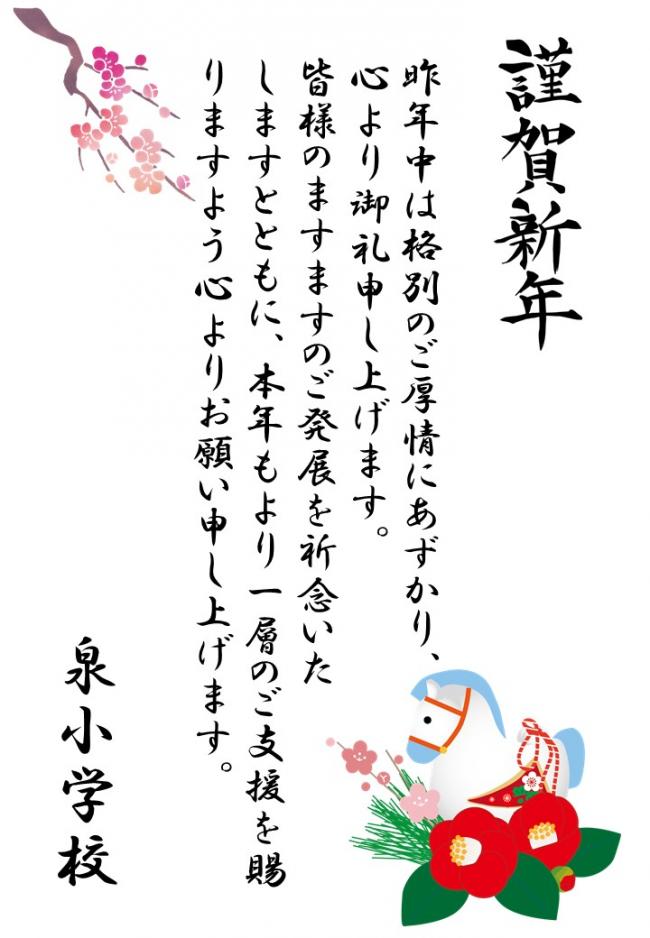 謹賀新年
昨年中は格別のご厚情にあずかり、
心より御礼申し上げます。
皆様のますますのご発展を祈念いた
しますとともに、本年もより一層のご支援を賜
りますよう心よりお願い申し上げます。
泉小学校